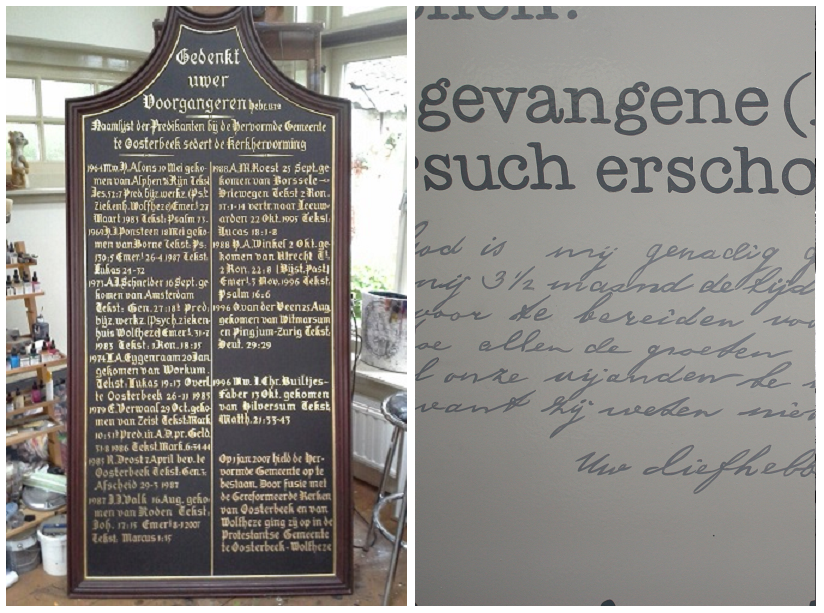 Gedenkt
uwer
Voorgangeren hebr.13:7
Naamlijst der Predikanten bij de Hervormde Gemeente
te Oosterbeek sedert de Kerkhervorming
1964 Mw. H. Alons 10 Mei geko-
men van Alphen a/Rijn Tekst
Jes. 52:7 Pred. bijz. werkz. (Pst
Ziekenh. Wolfheze) Emer.
Maart 1983 Tekst: Psalm 73.
men van Borne Tekst: Ps.
130:5 Emer. 26-4 1987 Tekst
Lukas 24-32
1971 A. Schneider 16 Sept. ge-
komen van Amsterdam
Tekst: Gen. Pred.
bijz. werkz. (Psych. zieken-
huis Wolfheze) Emer. 31-7
1983 Tekst: 1 Kon. 18:15
1974 L.A. Eygenraam 20 Jan.
gekomen van Workum.
Tekst: Lukas 19:13 Overl.
te Oosterbeek 26-11 1983
1979 E. Verwaal 29 Oct. geko-
men van Zeist Tekst: Mark.
10:51b Pred. in A.D. pr. Geld.
31-8 1986 Tekst: Mark. 6:34-44
1985 R. Drost 2 April bev. te
Oosterbeek Tekst: Gen. 3:
Afscheid 29-3 1987
1987 J.J. Valk 16 Aug. geko-
men van Roden Tekst:
Joh. 17:15 Emer. 2007
Tekst: Marcus 1:15
1988 A.M. Roest 25 Sept. ge-
komen van Borssele-
Driewegen Tekst: 2 Kon.
vertr. naar Leeuw-
arden 22 Okt. 1995 Tekst:
Lucas 18:1-8
1988 H.A. Winkel 2 Okt. ge-
komen van Utrecht T:
2 Kon. 22:8 (Bijst. Past.)
Emer. 3 Nov. 1996 Tekst:
Psalm 16:6
1996 O. van der Veen 25 Aug.
gekomen van Witmarsum
en Pingjum-Zurig Tekst
Deut. 29:29
1996 Mw. I. Chr. Builtjes-
Faber 13 Okt. gekomen
van Hilversum Tekst
Matth. 21:33-43
Op 1 jan. 2007 hield de Her-
vormde Gemeente op te
bestaan. Door fusie met
de Gereformeerde Kerken
van Oosterbeek en van
Wolfheze ging zij op in de
Protestantse Gemeente
te Oosterbeek-Wolfheze
gevangene (
such erscho
God is mij genadig g
mij 3½ maand de tijd
voor te bereiden voo
oe allen de groeten
l onze vijanden te
want zij weten niet
Uw liefhebb